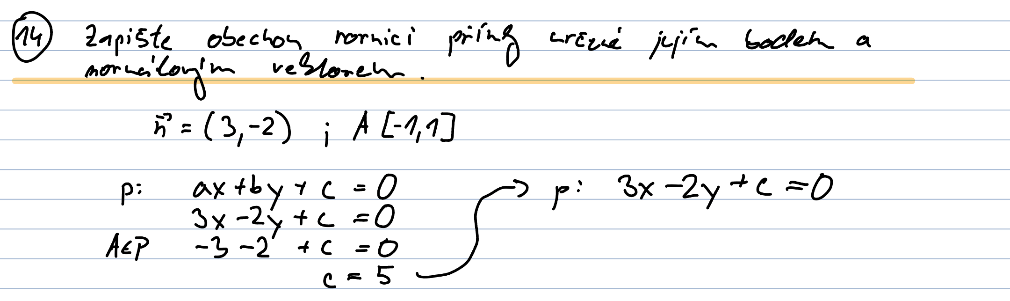 14 Zapište obecnou rovnici přímky určené jejím bodem a
normálovým vektorem.
n⃗ = (3,-2) ; A [-1,1]
p: ax + by + c = 0 → p: 3x - 2y + c = 0
3x - 2y + c = 0
A∈P -3 - 2 + c = 0
c = 5